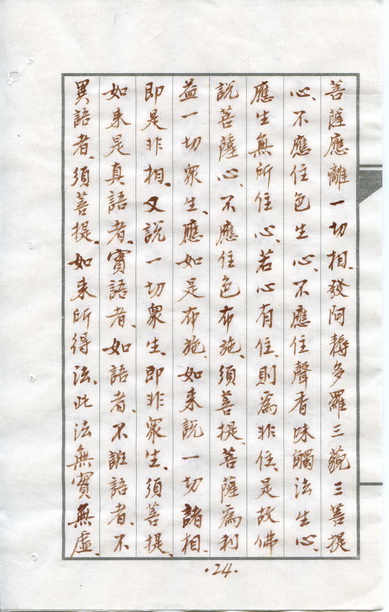 菩薩應離一切相、發阿耨多羅三藐三菩提
心、不應住色生心、不應住聲香味觸法生心、
應生無所住心、若心有住、則為非住、是故佛
說菩薩心、不應住色布施、須菩提、菩薩為利
益一切眾生、應如是布施、如來說一切諸相、
即是非相、又說一切眾生、即非眾生、須菩提、
如来是真語者、實語者、如語者、不誑語者、不
異語者、須菩提、如来所得法、此法無實無虛、
·24·